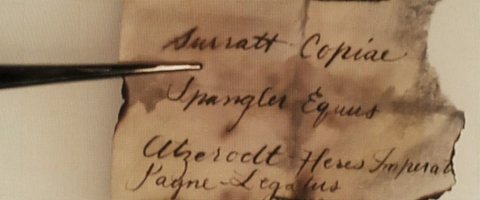 Surratt Copiae
Spangler Equus
Atzerodt - Heres Imperat
Payne - Legatus